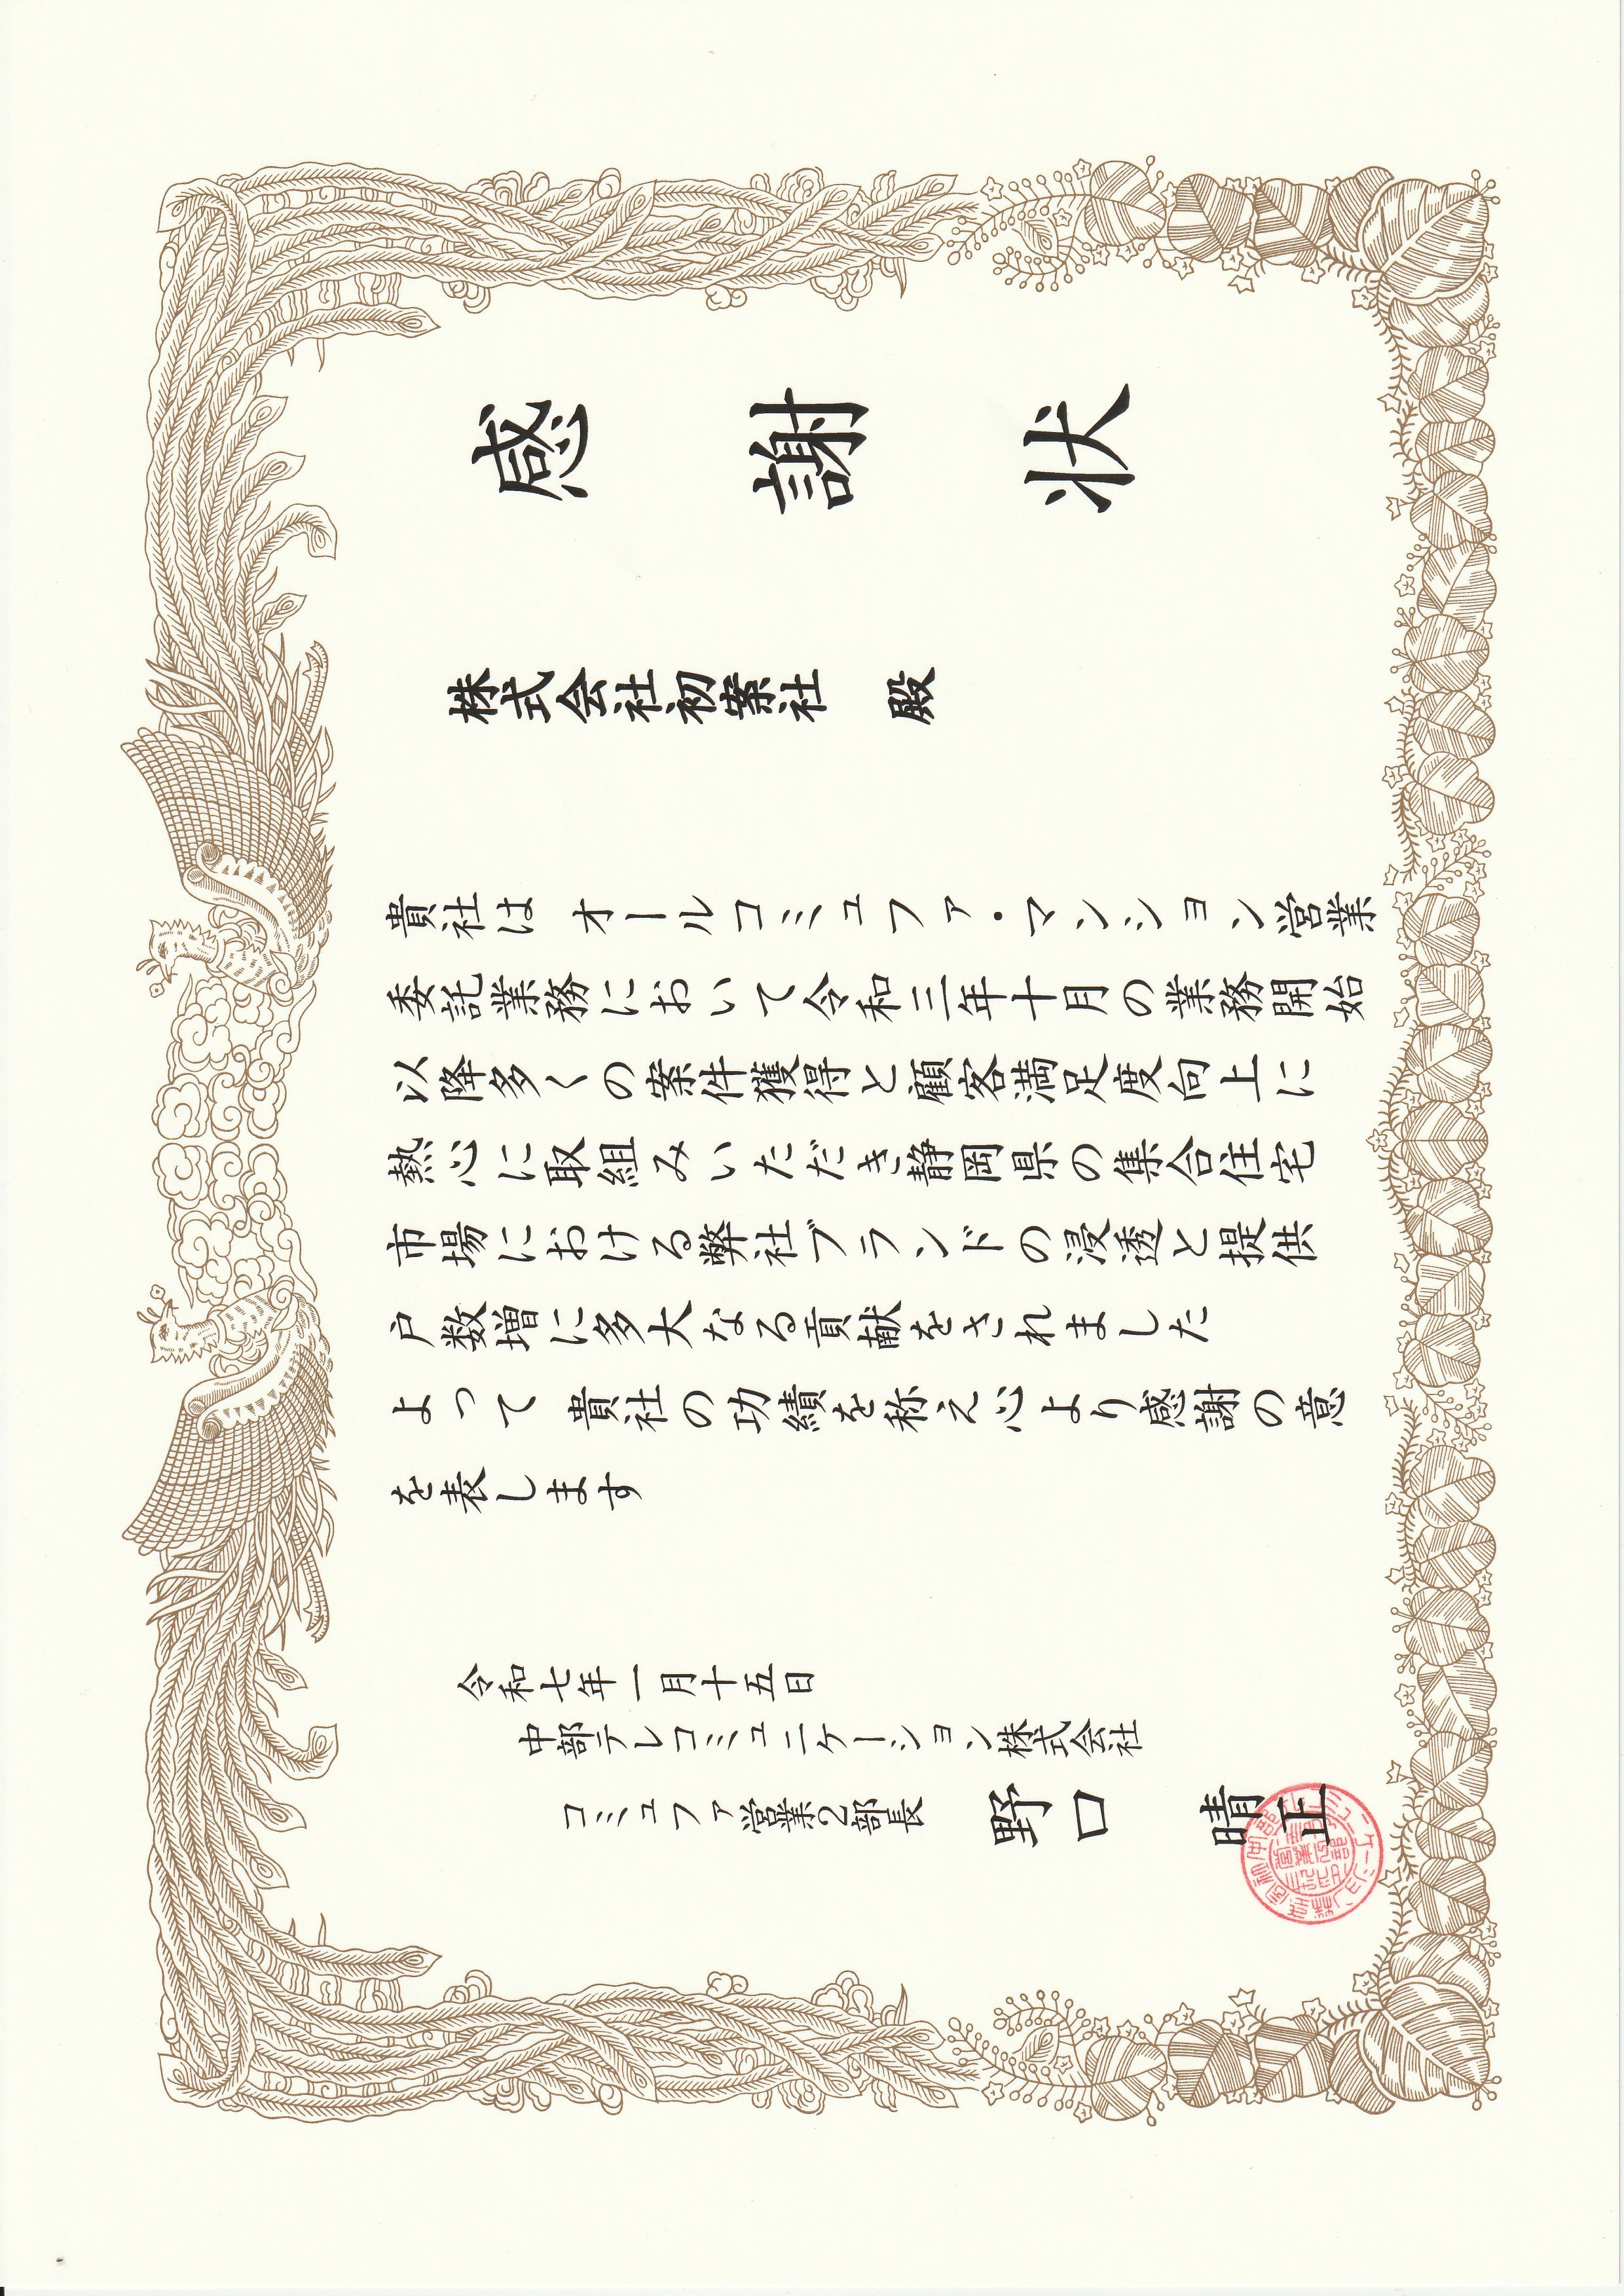 感謝状
株式会社初案社 殿
貴社は オールコミュファ・マンション営業
委託業務において令和三年十月の業務開始
以降多くの案件獲得と顧客満足度向上に
熱心に取組みいただき静岡県の集合住宅
市場における弊社ブランドの浸透と提供
戸数増に多大なる貢献をされました
よって 貴社の功績を称え心より感謝の意
を表します
令和七年一月十五日
中部テレコミュニケーション株式会社
コミュファ営業2部長 野口 晴正